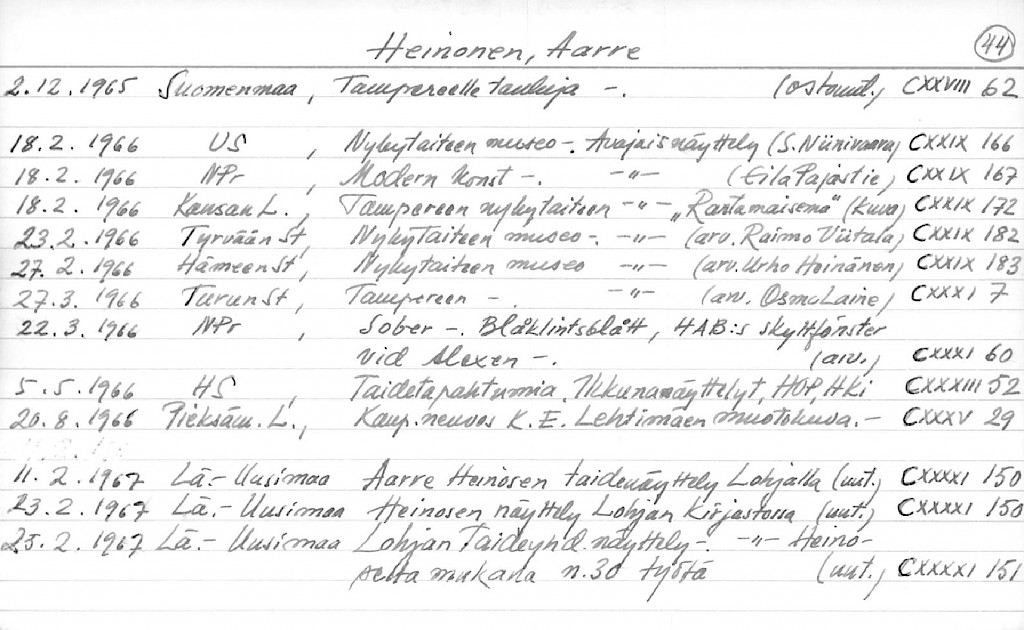 Heinonen, Aarre 44
2.12.1965 Suomenmaa, Tampereelle tauluja -. (ostouut.) CXXVIII 62
18.2.1966 US, Nykytaiteen museo -. Avajaisnäyttely (S. Niinivaara) CXXIX 166
18.2.1966 NPr, Modern Konst -. -"- (Eila Pajastie) CXXIX 167
18.2.1966 Kansan L., Tampereen nykytaiteen -"- „Rantamaisema" (kuva) CXXIX 172
23.2.1966 Tyrvään St, Nykytaiteen museo -. -"- (arv. Raimo Viitala) CXXIX 182
27.2.1966 Hämeen St, Nykytaiteen museo -"- (arv. Urho Heinänen) CXXIX 183
27.3.1966 Turun St, Tampereen -. -"- (arv. Osmo Laine) CXXXI 7
22.3.1966 NPr, Sober -. Blåklintsblått, HAB:s skyltfönster
vid Alexen -. (arv.) CXXXI 60
5.5.1966 HS, Taidetapahtumia. Ikkunanäyttelyt, HOP, HKi CXXXIII 52
20.8.1966 Pieksäm. L., Kaup.neuvos K.E. Lehtimäen muotokuva. - CXXXV 29
11.2.1967 Lä.- Uusimaa Aarre Heinosen taidenäyttely Lohjalla (uut.) CXXXXI 150
23.2.1967 Lä.- Uusimaa Heinosen näyttely Lohjan Kirjastossa (uut.) CXXXXI 150
23.2.1967 Lä.- Uusimaa Lohjan Taideyhd. näyttely -. -"- Heino-
selta mukana n. 30 työtä (uut.) CXXXXI 151